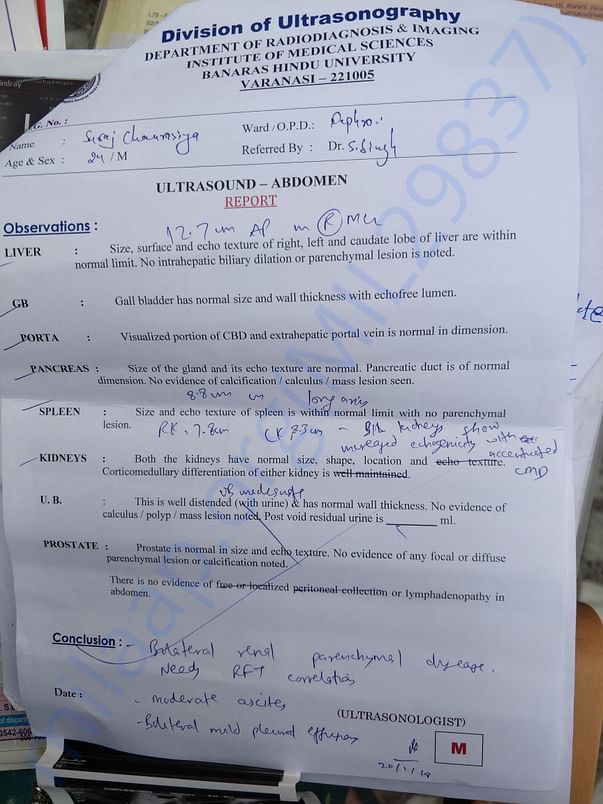 Division of Ultrasonography
DEPARTMENT OF RADIODIAGNOSIS & IMAGING
INSTITUTE OF MEDICAL SCIENCES
BANARAS HINDU UNIVERSITY
VARANASI – 221005
G. No. :
Name : Suraj Chaurasiya Ward / O.P.D.: Nephro.
Age & Sex : 24 / M Referred By : Dr. S. Singh
ULTRASOUND – ABDOMEN
REPORT
Observations :
12.7 cm AP in (R) MCL
LIVER : Size, surface and echo texture of right, left and caudate lobe of liver are within
normal limit. No intrahepatic biliary dilation or parenchymal lesion is noted.
GB : Gall bladder has normal size and wall thickness with echofree lumen.
PORTA : Visualized portion of CBD and extrahepatic portal vein is normal in dimension.
PANCREAS : Size of the gland and its echo texture are normal. Pancreatic duct is of normal
dimension. No evidence of calcification / calculus / mass lesion seen.
8.8 cm in long axis
SPLEEN : Size and echo texture of spleen is within normal limit with no parenchymal
lesion.
RK, 7.8cm LK 8.3cm - B/L kidneys show
increased echogenicity with accentuated
CMD
KIDNEYS : Both the kidneys have normal size, shape, location and echo texture.
Corticomedullary differentiation of either kidney is well maintained.
U. B. : This is well distended (with urine) & has normal wall thickness. No evidence of
calculus / polyp / mass lesion noted. Post void residual urine is ml.
PROSTATE : Prostate is normal in size and echo texture. No evidence of any focal or diffuse
parenchymal lesion or calcification noted.
There is no evidence of free or localized peritoneal collection or lymphadenopathy in
abdomen.
Conclusion : - Bilateral renal parenchymal disease.
Needs RFT correlation
- moderate ascites
- Bilateral mild pleural effusion
Date :
(ULTRASONOLOGIST)
M
milaap.org